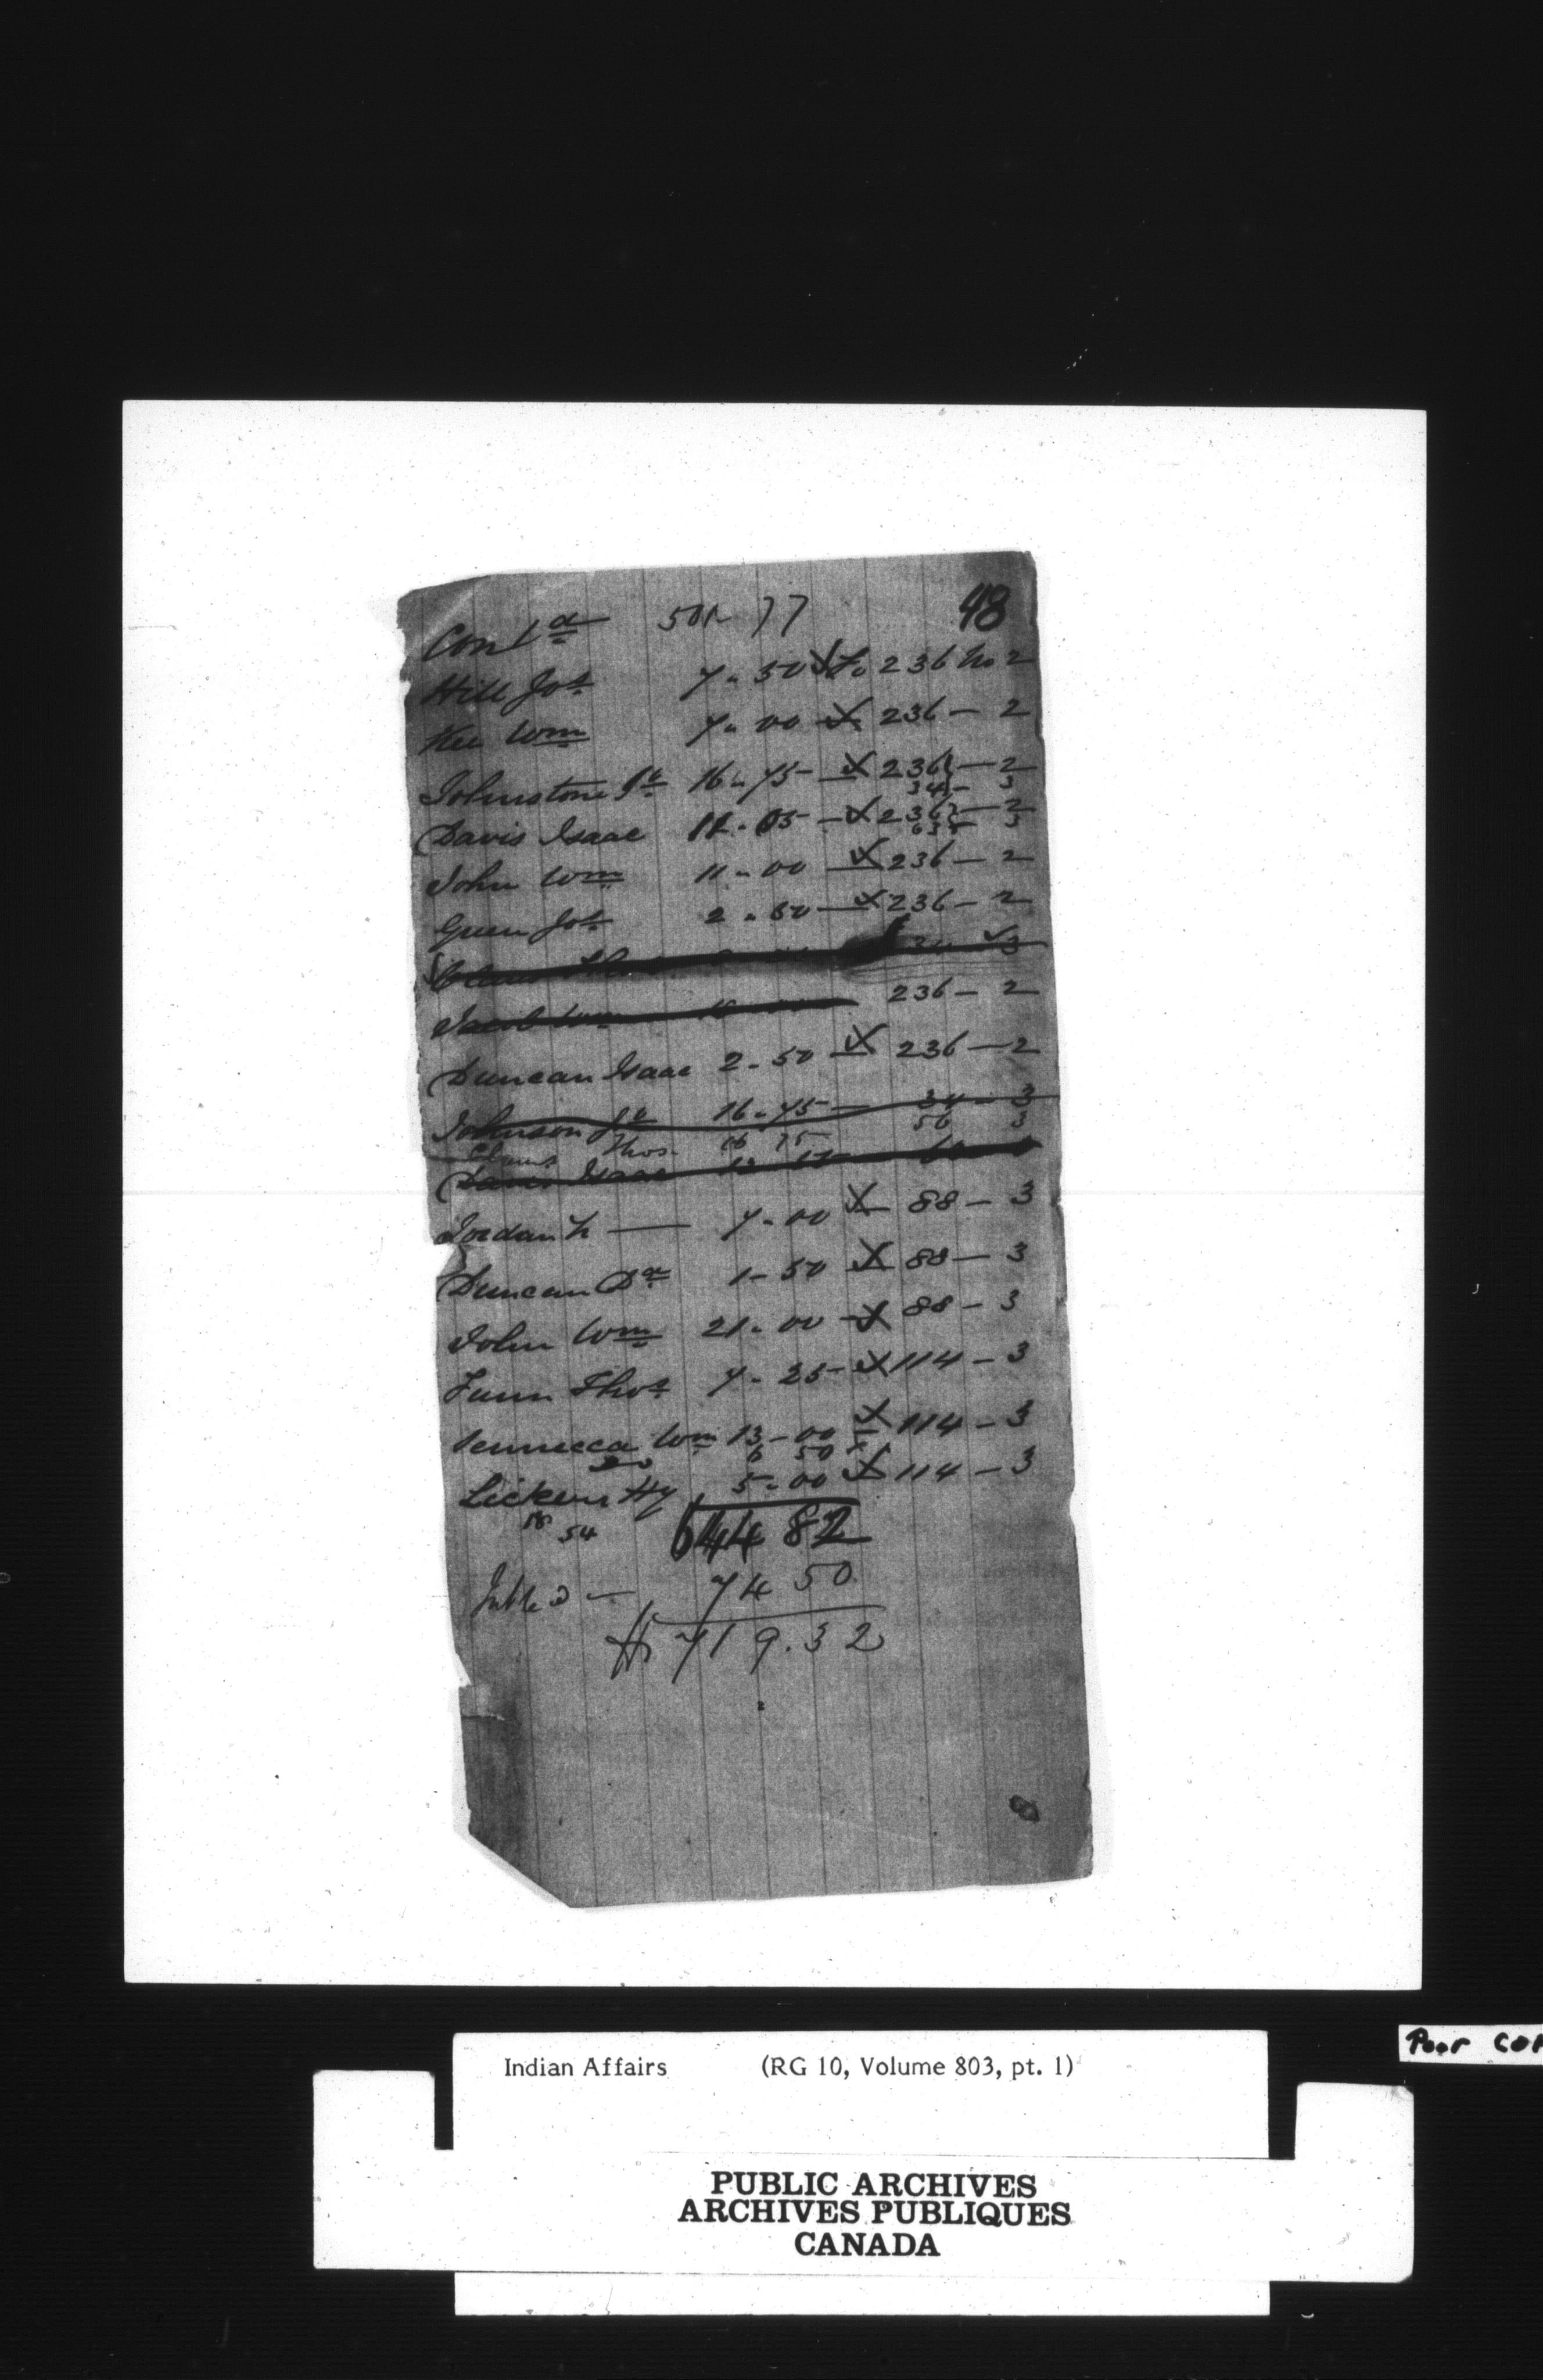 Contd 501 77 48
Hill Jos 7 - 50 X Fo 236 No 2
Kee Wm 7 - 00 X 236 - 2
Johnstone Js 16 - 75 - X 236 - 2
34 - 3
Davis Isaac 12 - 05 - X 236 - 2
63 - 3
John Wm 11 - 00 X 236 - 2
Green Jos 2 - 50 - X 236 - 2
Claus Thos 34 3
Jacob Wm 236 - 2
Duncan Isaac 2 - 50 X 236 - 2
Johnson Js 16 - 75 - 34 - 3
Claus Thos. 16 75 56 3
Davis Isaac 12
Jordan N — 7 - 00 X 88 - 3
Duncan Dd 1 - 50 X 88 - 3
John Wm 21 - 00 - X 88 - 3
Funn Thos 7 - 25 - X 114 - 3
Sennecca Wm 13 - 00 X 114 - 3
Do 6 50 X
Lickers Hy 5 - 00 X 114 - 3
18 54 644 82
74 50
$ 719.32
Indian Affairs (RG 10, Volume 803, pt. 1)
Poor COP
PUBLIC ARCHIVES
ARCHIVES PUBLIQUES
CANADA